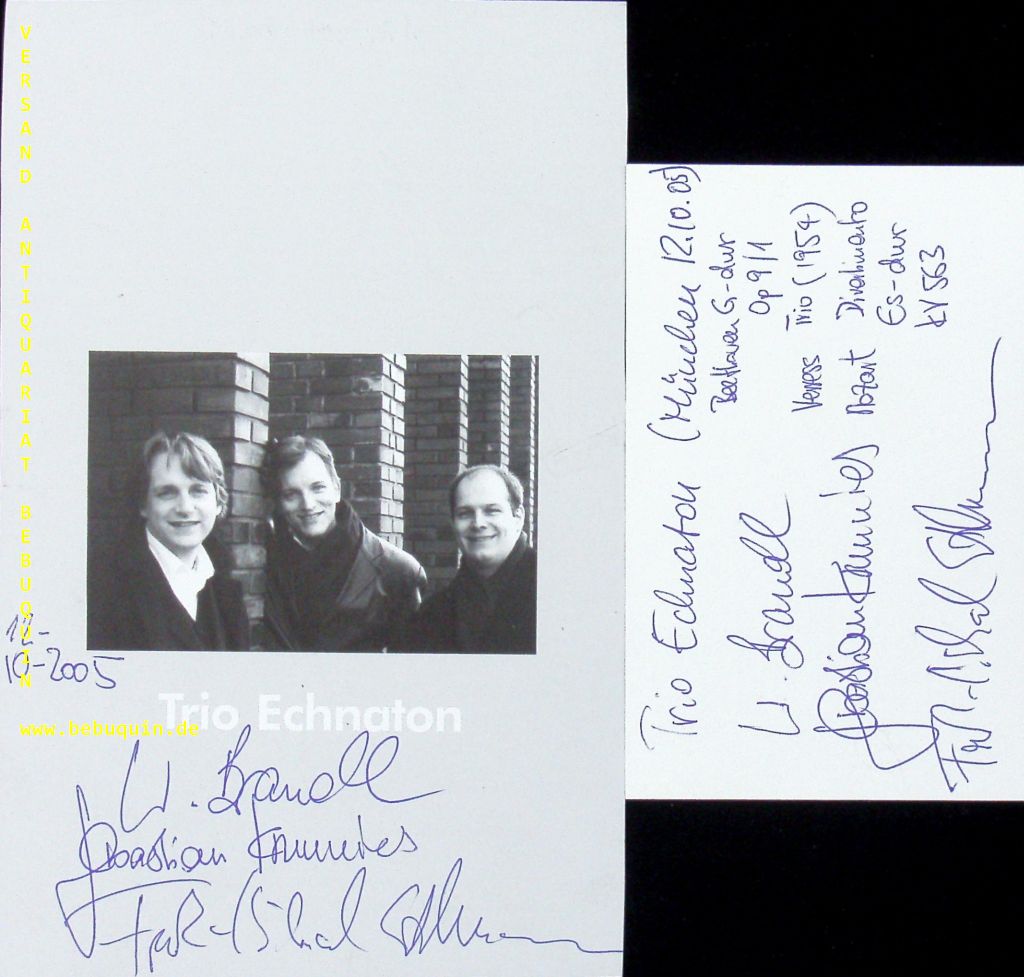 VERSAND ANTIQUARIAT BEBUQUIN
www.bebuquin.de
12-
10-2005
Trio Echnaton
W. Brandl
Sebastian Krunnies
Frank-Michael
Trio Echnaton (München 12.10.05)
Beethoven G-dur
Op 9/1
W. Brandl
Veress Trio (1954)
Sebastian Krunnies
Mozart Divertimento
Es-dur
KV 563
Frank-Michael